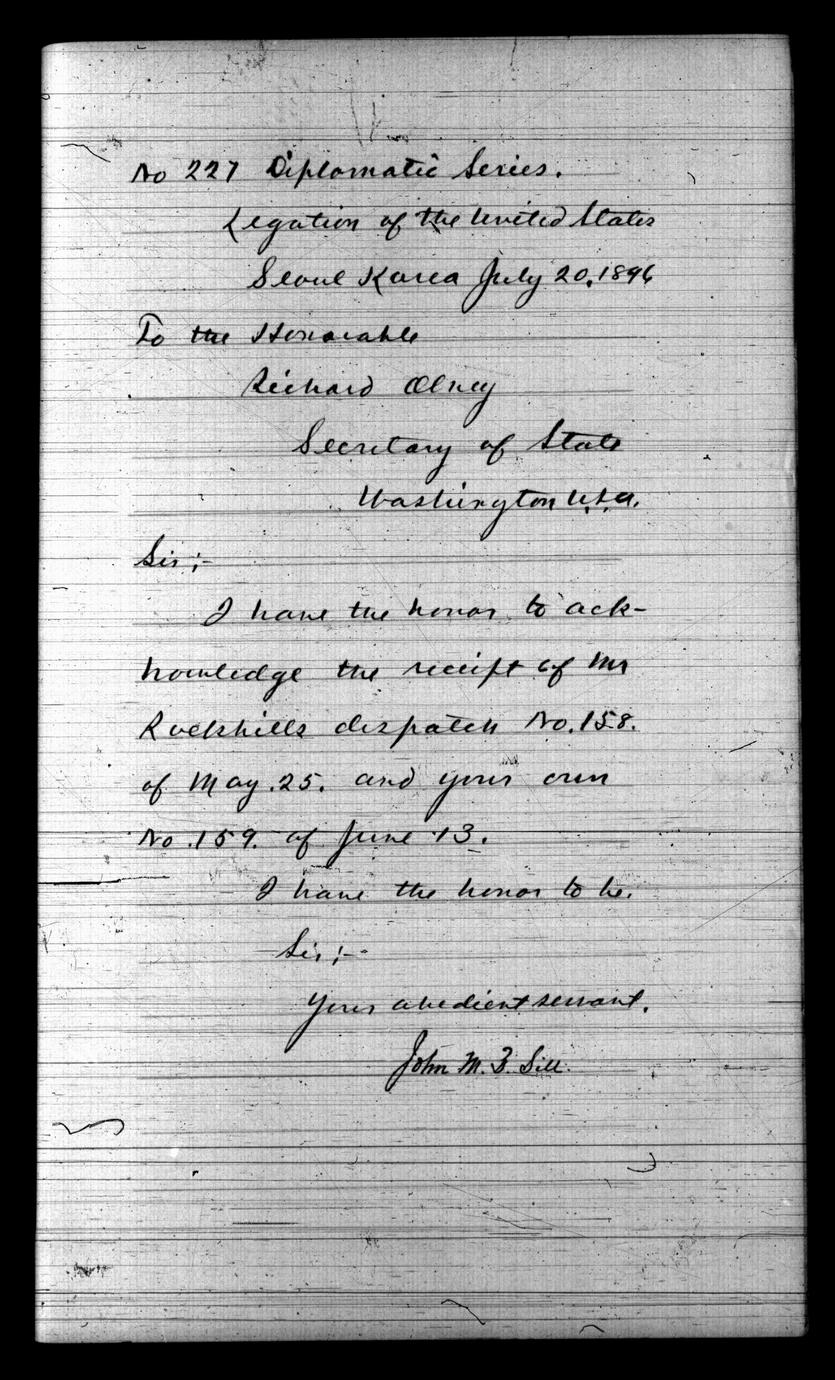 No 227 Diplomatic Series.
Legation of the United States
Seoul Korea July 20, 1896
To the Honorable
Richard Olney
Secretary of State
Washington U.S.A.
Sir;-
I have the honor to ack-
nowledge the receipt of Mr
Rockhills dispatch No. 158.
of May. 25. and your own
No. 159. of June 13.
I have the honor to be.
Sir;-
Your obedient servant.
John M. B. Sill.